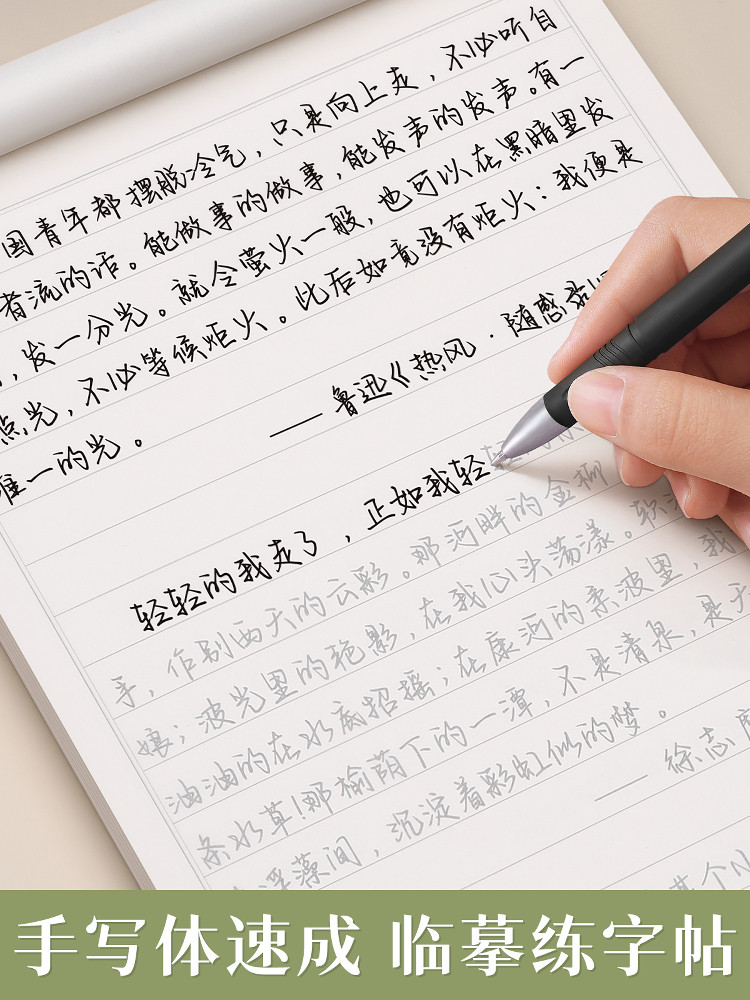 国青年都摆脱冷气，只是向上走，不必听自
者流的话。能做事的做事，能发声的发声。有一
，发一分光。就令萤火一般，也可以在黑暗里发
点光，不必等候炬火。此后如竟没有炬火：我便是
唯一的光。
—— 鲁迅《热风·随感录
轻轻的我走了，正如我轻
手，作别西天的云彩。那河畔的金柳
娘；波光里的艳影，在我心头荡漾。软
油油的在水底招摇；在康河的柔波里，我
条水草！那榆荫下的一潭，不是清泉，是天
浮藻间，沉淀着彩虹似的梦。
—— 徐志
某个
手写体速成 临摹练字帖